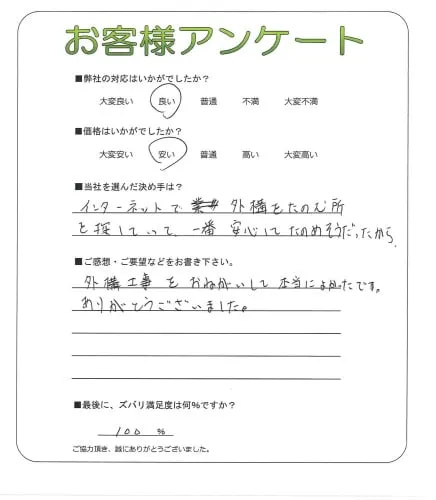 お客様アンケート
■弊社の対応はいかがでしたか？
大変良い 良い 普通 不満 大変不満
■価格はいかがでしたか？
大変安い 安い 普通 高い 大変高い
■当社を選んだ決め手は？
インターネットで 外構をたのむ所
を探していて、一番 安心してたのめそうだったから、
■ご感想・ご要望などをお書き下さい。
外構工事をおねがいして本当によかったです。
ありがとうございました。
■最後に、ズバリ満足度は何％ですか？
100 %
ご協力頂き、誠にありがとうございました。